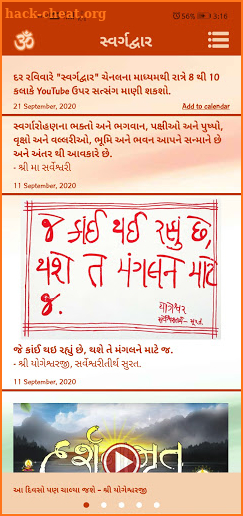 hack-cheat.org
56% 3:16
સ્વર્ગદ્વાર
દર રવિવારે "સ્વર્ગદ્વાર" ચેનલના માધ્યમથી રાત્રે 8 થી 10
કલાકે YouTube ઉપર સત્સંગ માણી શકશો.
21 September, 2020 Add to calendar
સ્વર્ગારોહણના ભક્તો અને ભગવાન, પક્ષીઓ અને પુષ્પો,
વૃક્ષો અને વલ્લરીઓ, ભૂમિ અને ભવન આપને સન્માને છે
અને અંતર થી આવકારે છે.
- શ્રી મા સર્વેશ્વરી
11 September, 2020
જે કાંઈ થઈ રહ્યું છે,
થશે તે મંગલને માટે
જ.
યોગેશ્વર
જે કાંઈ થઇ રહ્યું છે, થશે તે મંગલને માટે જ.
- શ્રી યોગેશ્વરજી, સર્વેશ્વરીતીર્થ સુરત.
11 September, 2020
આ દિવસો પણ ચાલ્યા જશે - શ્રી યોગેશ્વરજી